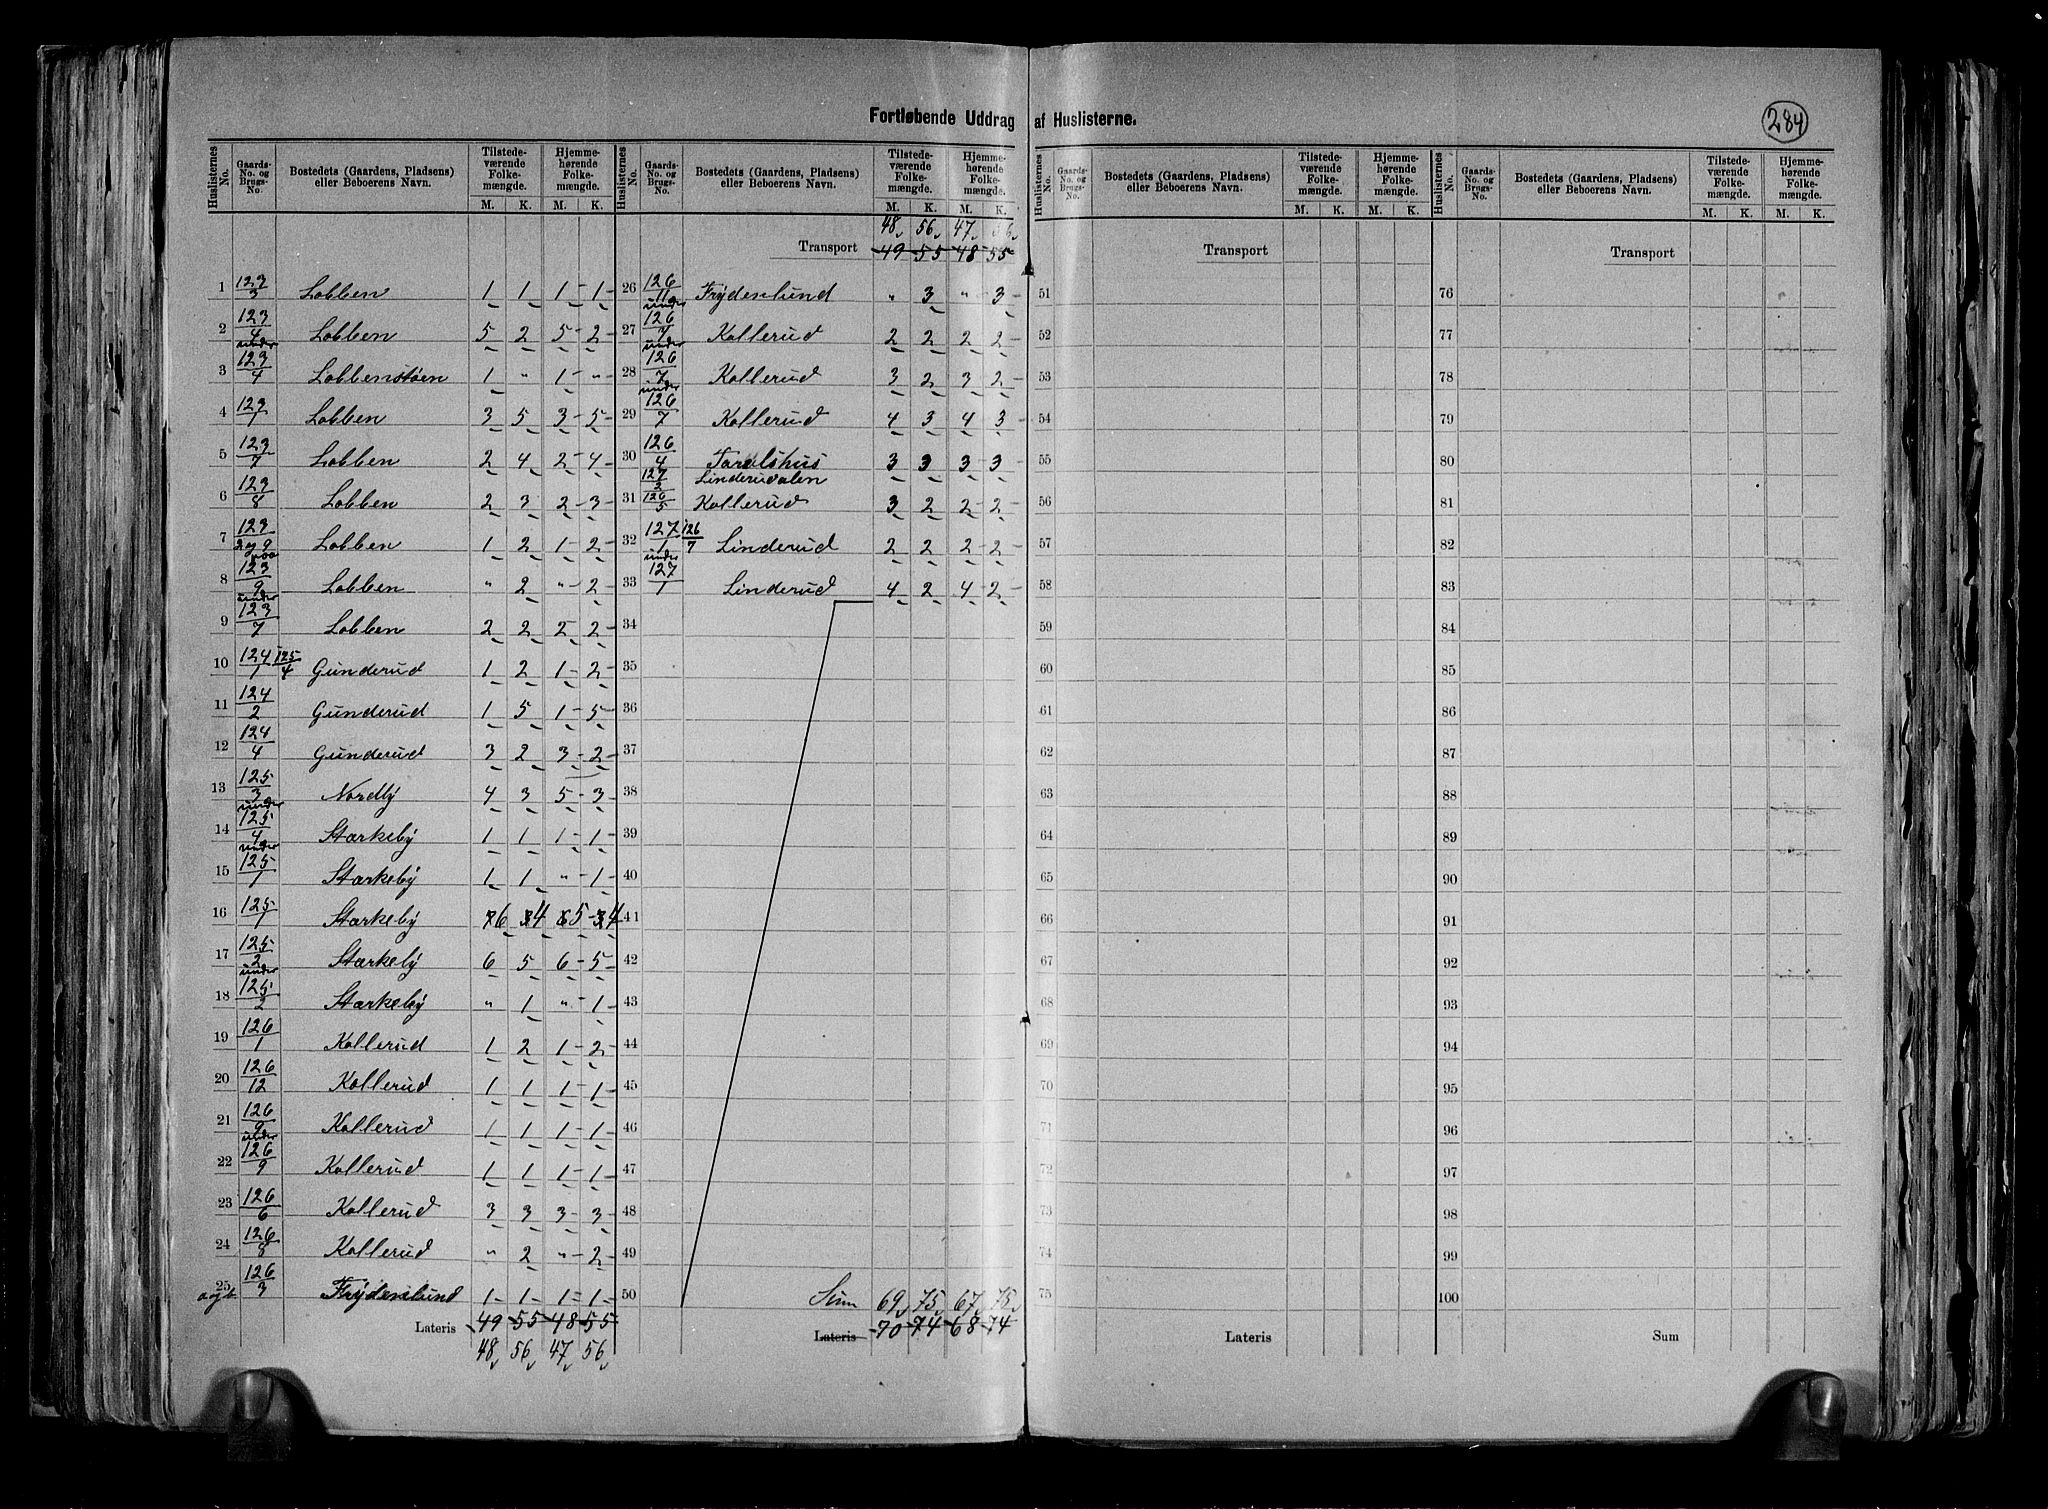 Fortløbende Uddrag af Huslisterne.
284
Huslisternes No. Gaards-No. og Brugs-No. Bostedets (Gaardens, Pladsens) eller Beboerens Navn. Tilstedeværende Folkemængde. M. K. Hjemmehørende Folkemængde. M. K.
1 123/3 Lobben 1 1 1 - 1
2 123/4 Lobben 5 2 5 - 2
3 under 123/4 Lobbenstøen 1 " 1 - "
4 123/1 Lobben 3 5 3 - 5
5 123/7 Lobben 2 4 2 - 4
6 123/8 Lobben 2 3 2 - 3
7 123/2 og 9 Lobben 1 2 1 - 2
8 paa 123/9 Lobben " 2 " - 2
9 under 123/7 Lobben 2 2 2 - 2
10 124/1 125/4 Gunderud 1 2 1 - 2
11 124/2 Gunderud 1 5 1 - 5
12 124/4 Gunderud 3 2 3 - 2
13 125/3 Nordby 4 3 5 - 3
14 under 125/4 Stærkeby 1 1 1 - 1
15 under 125/1 Stærkeby 1 1 " - 1
16 125/1 Stærkeby 7 6 3 4 6 5 - 3 4
17 125/2 Stærkeby 6 5 6 - 5
18 under 125/2 Stærkeby " 1 " - 1
19 126/1 Kollerud 1 2 1 - 2
20 126/12 Kollerud 1 1 1 - 1
21 126/9 Kollerud 1 1 1 - 1
22 under 126/9 Kollerud 1 1 1 - 1
23 126/6 Kollerud 3 3 3 - 3
24 126/8 Kollerud " 2 " - 2
25 126/3 Frydenlund 1 1 1 - 1
Lateris 49 55 48 55
48 56 47 56
Huslisternes No. Gaards-No. og Brugs-No. Bostedets (Gaardens, Pladsens) eller Beboerens Navn. Tilstedeværende Folkemængde. M. K. Hjemmehørende Folkemængde. M. K.
48 56 47 56
Transport 49 55 48 55
26 126/11 Frydenlund " 3 " 3
27 under 126/7 Kollerud 2 2 2 2
28 under 126/7 Kollerud 3 2 3 2
29 under 126/7 Kollerud 4 3 4 3
30 126/4 Taralshus 3 3 3 3
127/2 Linderudalen
31 126/5 Kollerud 3 2 2 2
32 127/1 126/7 Linderud 2 2 2 2
33 under 127/1 Linderud 4 2 4 2
34
35
36
37
38
39
40
41
42
43
44
45
46
47
48
49
50 Sum 69 75 67 75
Lateris 70 74 68 74
Huslisternes No. Gaards-No. og Brugs-No. Bostedets (Gaardens, Pladsens) eller Beboerens Navn. Tilstedeværende Folkemængde. M. K. Hjemmehørende Folkemængde. M. K.
Transport
51
52
53
54
55
56
57
58
59
60
61
62
63
64
65
66
67
68
69
70
71
72
73
74
75
Lateris
Huslisternes No. Gaards-No. og Brugs-No. Bostedets (Gaardens, Pladsens) eller Beboerens Navn. Tilstedeværende Folkemængde. M. K. Hjemmehørende Folkemængde. M. K.
Transport
76
77
78
79
80
81
82
83
84
85
86
87
88
89
90
91
92
93
94
95
96
97
98
99
100
Sum